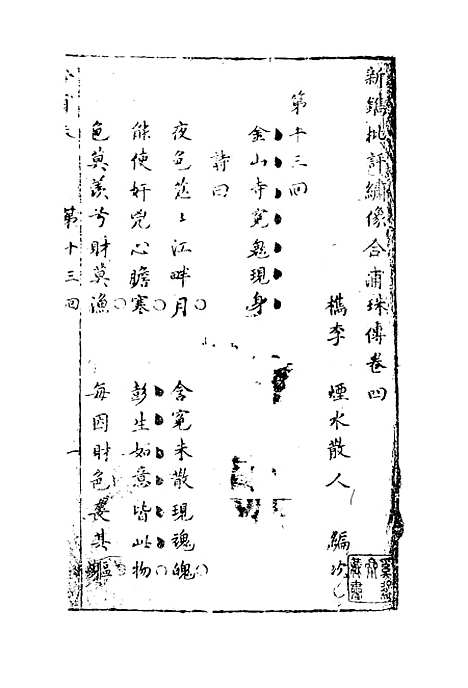 新鐫批評繡像合浦珠傳卷四
檇李 煙水散人 編次
第十三回
金山寺冤鬼現身
詩曰
夜色茫々江畔月 含冤未散現魂魄
能使奸兇心膽寒 彭生如意皆此物
色莫羨兮財莫漁 每因財色喪其軀
第十三回 一